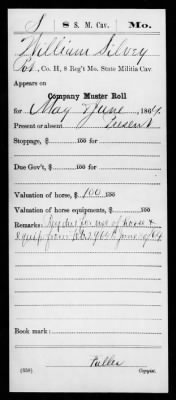 S | 8 S. M. Cav. | Mo.
William Silvey
Pvt, Co. H, 8 Reg't Mo. State Militia Cav
Appears on
Company Muster Roll
for May & June, 1864.
Present or absent Present
Stoppage, $ 100 for
Due Gov't, $ 100 for
Valuation of horse, $ 100 100
Valuation of horse equipments, $ 100
Remarks: Pay due for use of horse &
equip from
Book mark:
Fuller
(358) Copyist.